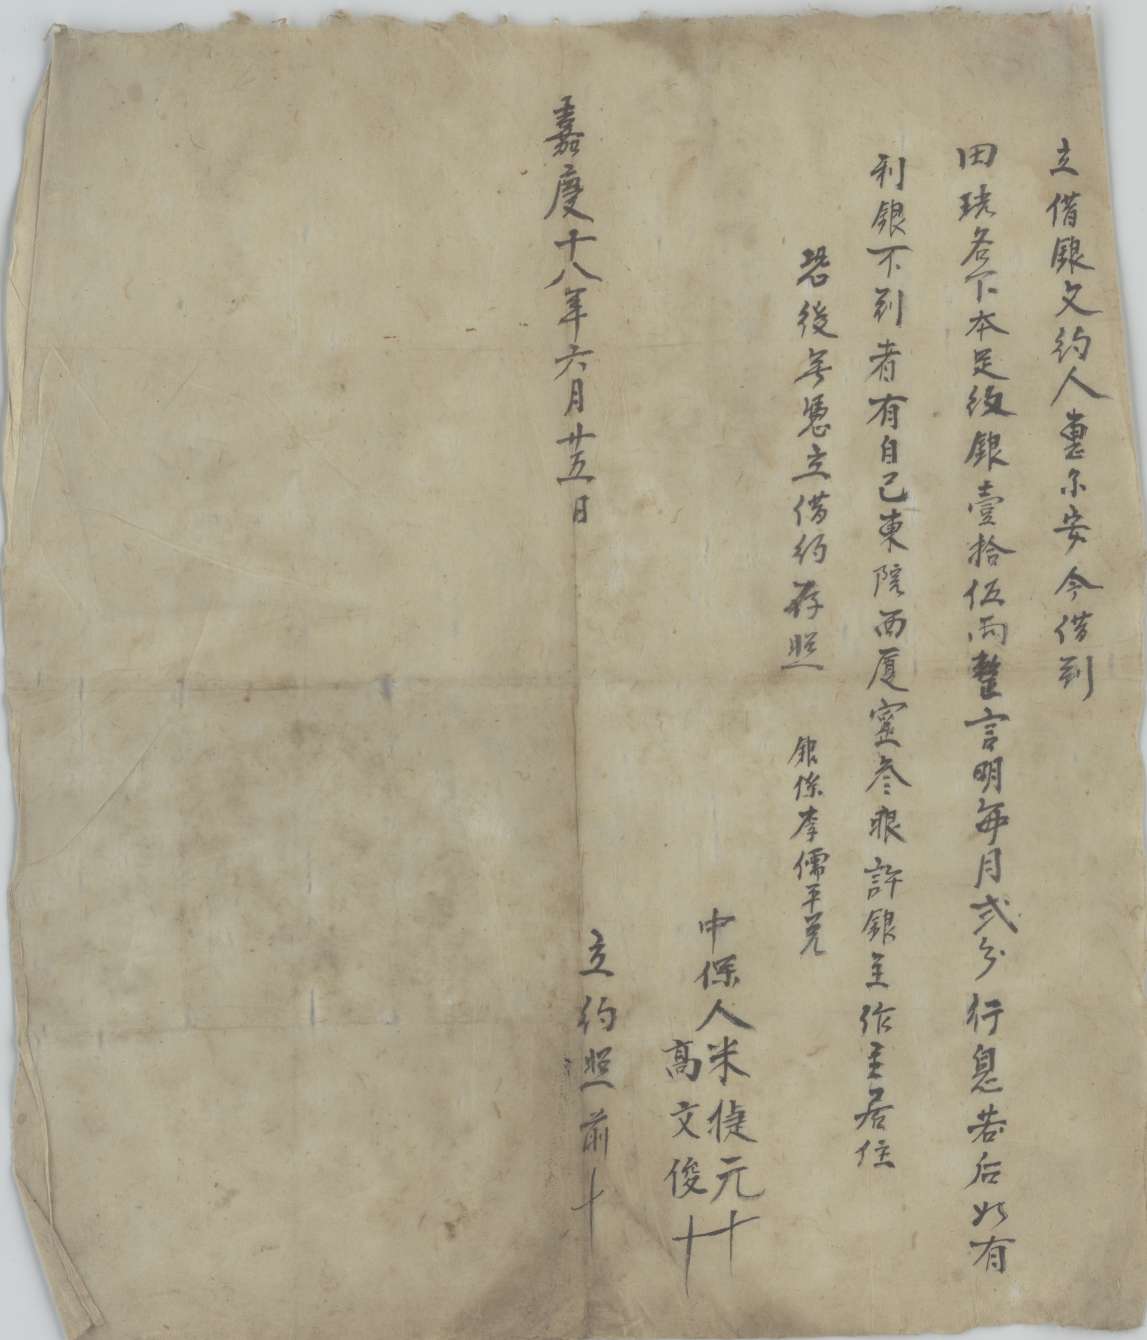 立借銀文約人惠尔安今借到
田珖名下本足紋銀壹拾伍両整言明每月弍分行息若后如有
利銀不到者有自己東院西厦窰叁眼許銀主作主居住
恐後無憑立借約存照
銀係李儒平兌
中保人米徤元十
高文俊十
立約照前十
嘉慶十八年六月廿五日